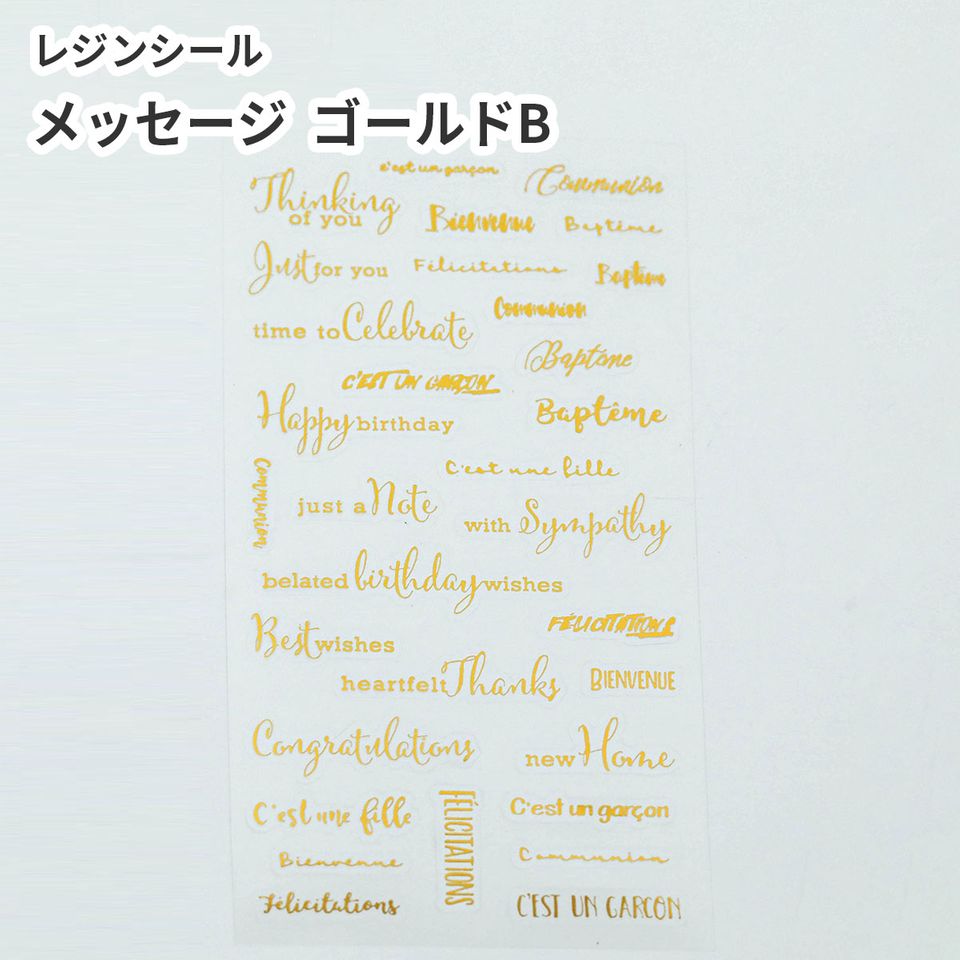 レジンシール
メッセージ ゴールドB
c'est un garçon
Communion
Thinking
of you
Bienvenue
Baptême
Just for you
Félicitations
Baptême
Communion
time to Celebrate
Baptême
C'EST UN GARÇON
Happy birthday
Baptême
C'est une fille
Communion
just a Note
with Sympathy
belated birthday wishes
FÉLICITATIONS
Best wishes
heartfelt Thanks
BIENVENUE
Congratulations
new Home
C'est une fille
FÉLICITATIONS
C'est un garçon
Bienvenue
Communion
Félicitations
C'EST UN GARÇON